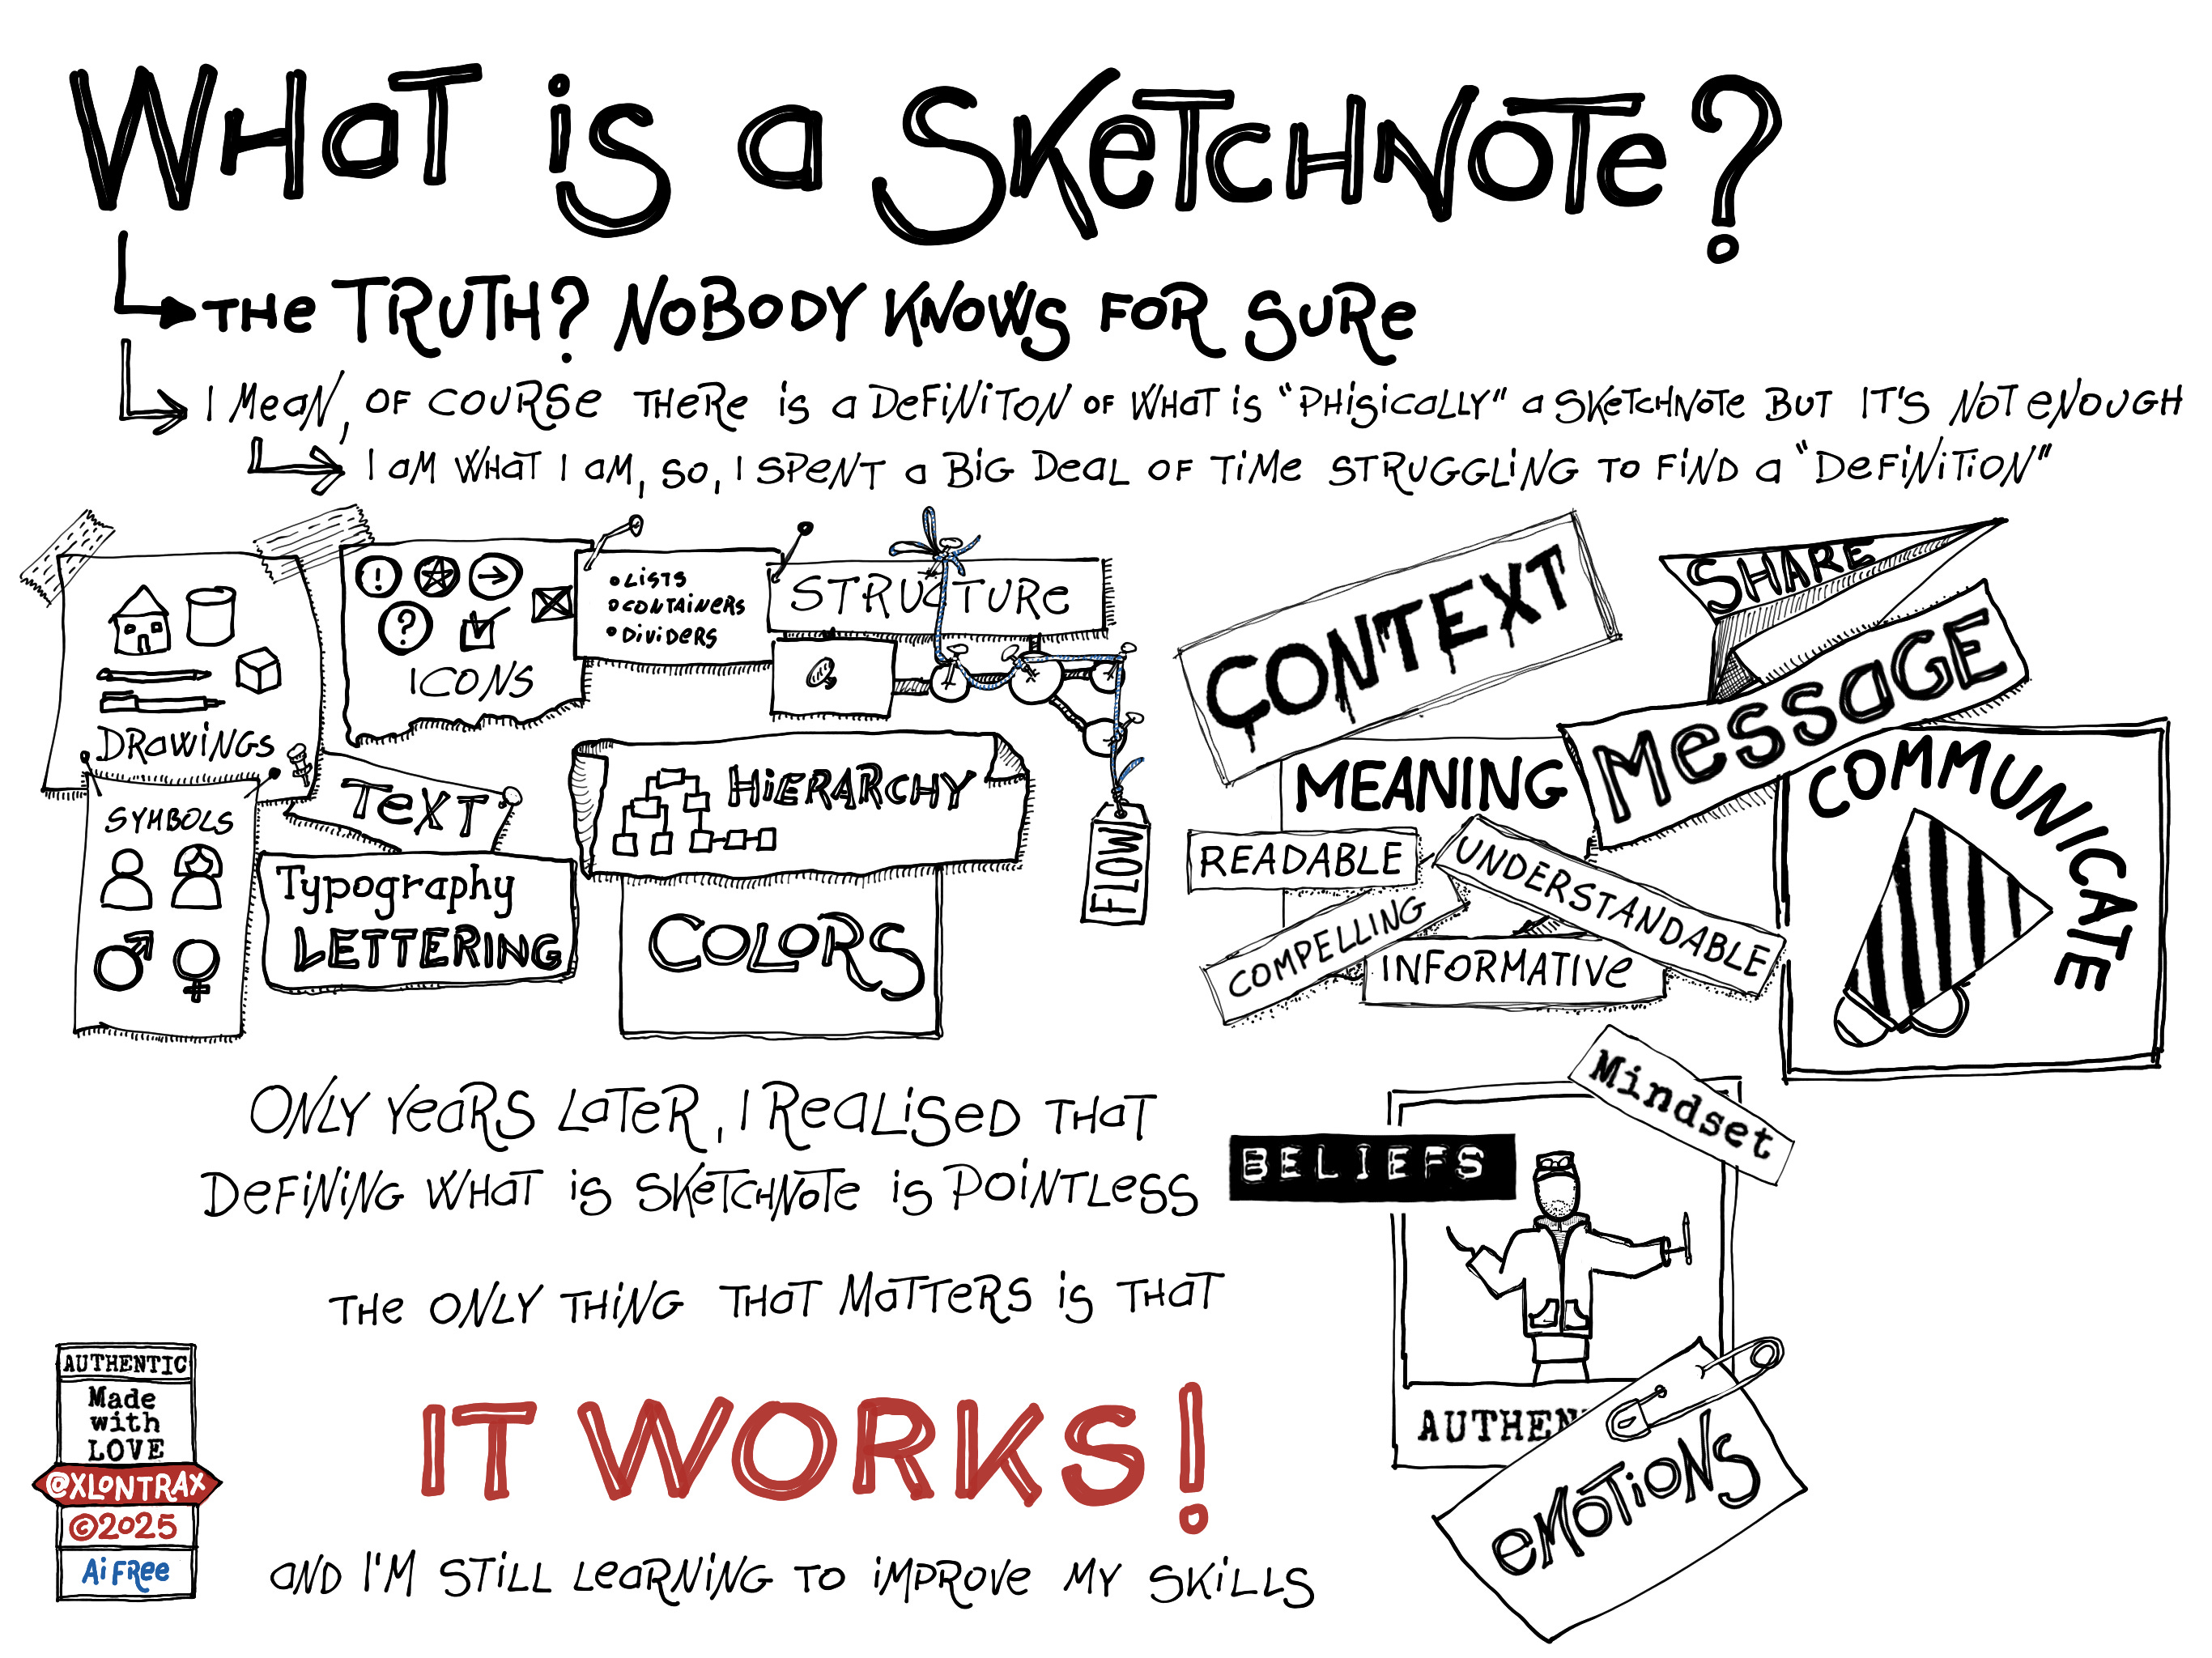 WHaT iS a SKeTCHNOTe?
THe TRUTH? NOBODY KNOWS FOR SURe
I MeaN, OF COURSe THeRe iS a DeFiNiTON OF WHaT iS "PHiSiCaLLY" a SKeTCHNOTe BUT IT'S NOT eNOUGH
I aM WHaT I aM, SO, I SPeNT a BiG DeaL OF TiMe STRUGGLiNG TO FiND a "DeFiNiTiON"
DRaWiNGS
!
?
ICONS
LiSTS
CONTAiNeRS
DiViDeRS
STRUCTURe
SYMBOLS
TeXT
Typography
LETTERiNG
HiERARCHY
COLORS
FLOW
CONTEXT
SHARE
MeSSaGE
MEANING
COMMUNICATE
READABLE
UNDERSTANDABLE
COMPELLING
INFORMATiVe
ONLY YeaRS LaTeR, I ReaLiSeD THaT
DeFiNiNG WHaT iS SKeTCHNOTe iS POiNTLeSS
THe ONLY THiNG THaT MaTTeRS iS THaT
IT WORKS!
aND I'M STiLL LeaRNiNG TO iMPROVe MY SKiLLS
Mindset
BELIEFS
AUTHEN
eMOTiONS
AUTHENTIC
Made
with
LOVE
@XLONTRAX
©2025
Ai FRee